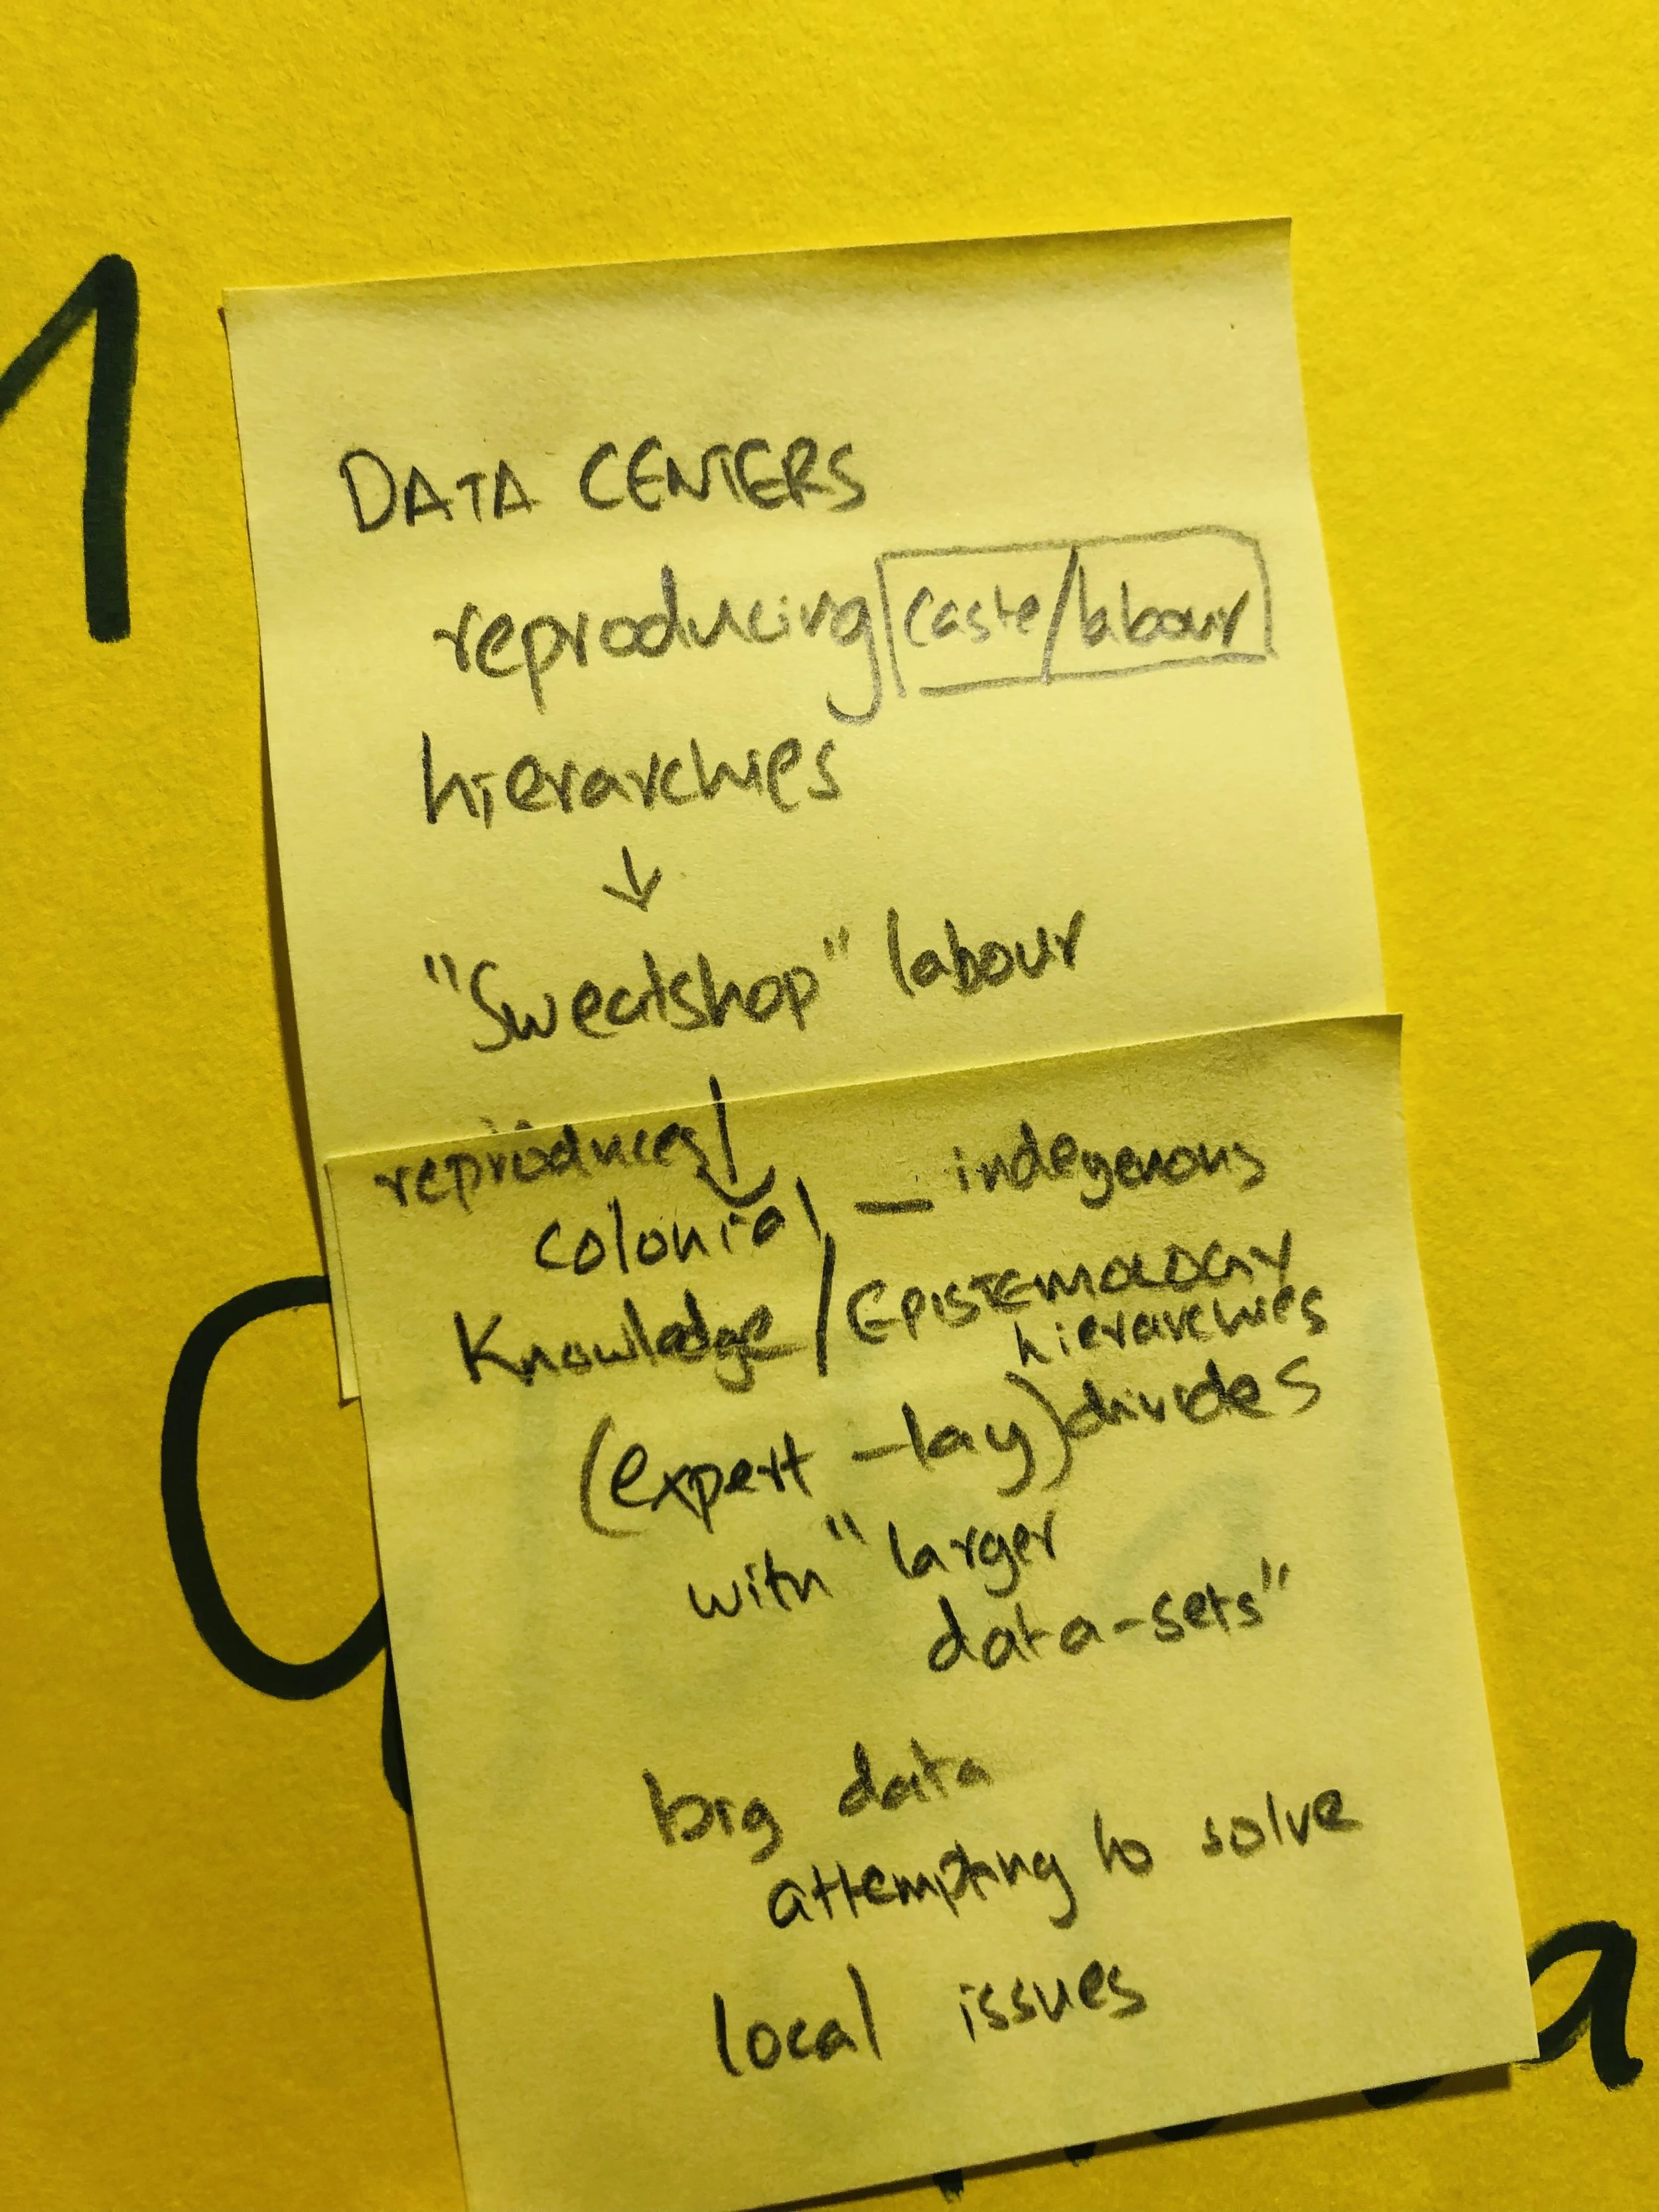 DATA CENTERS
reproducing caste/labour
hierarchies
↓
"Sweatshop" labour
reproduces ↓
colonial — indegenous
Knowledge / EPISTEMOLOGY
hierarchies
(expert - lay) divides
with "larger
data-sets"
big data
attempting to solve
local issues